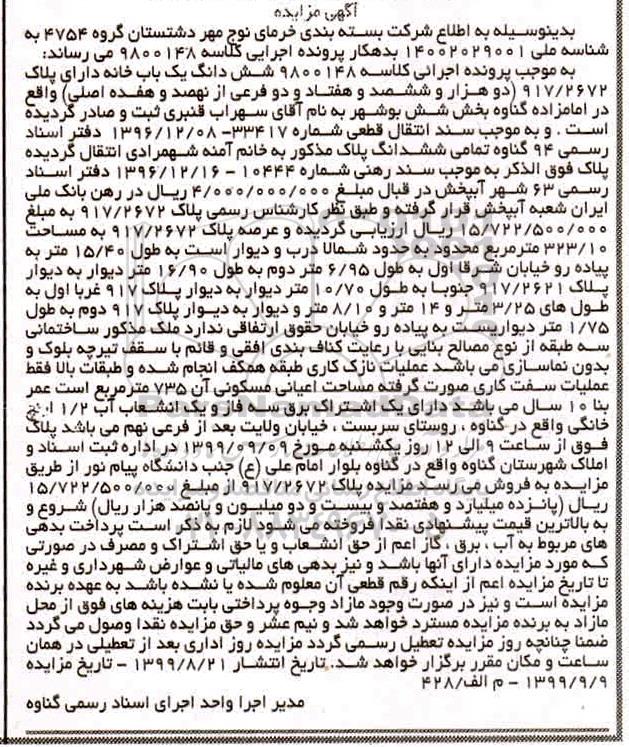 آگهی مزایده
بدینوسیله به اطلاع شرکت بسته بندی خرمای نوج مهر دشتستان گروه ۴۷۵۴ به
شناسه ملی ۱۴۰۰۲۰۲۹۰۰۱ بدهکار پرونده اجرایی کلاسه ۹۸۰۰۱۴۸ می رساند:
به موجب پرونده اجرائی کلاسه ۹۸۰۰۱۴۸ شش دانگ یک باب خانه دارای پلاک
۹۱۷/۲۶۷۲ (دو هزار و ششصد و هفتاد و دو فرعی از نهصد و هفده اصلی) واقع
در امامزاده گناوه بخش شش بوشهر به نام آقای سهراب قنبری ثبت و صادر گردیده
است . و به موجب سند انتقال قطعی شماره ۳۳۴۱۷- ۱۳۹۶/۱۲/۰۸ دفتر اسناد
رسمی ۹۴ گناوه تمامی ششدانگ پلاک مذکور به خانم آمنه شهمرادی انتقال گردیده
پلاک فوق الذکر به موجب سند رهنی شماره ۱۰۴۴۴ - ۱۳۹۶/۱۲/۱۶ دفتر اسناد
رسمی ۶۳ شهر آبپخش در قبال مبلغ ۴/۰۰۰/۰۰۰/۰۰۰ ریال در رهن بانک ملی
ایران شعبه آبپخش قرار گرفته و طبق نظر کارشناس رسمی پلاک ۹۱۷/۲۶۷۲ به مبلغ
۱۵/۷۲۲/۵۰۰/۰۰۰ ریال ارزیابی گردیده و عرصه پلاک ۹۱۷/۲۶۷۲ به مساحت
۳۲۳/۱۰ مترمربع محدود به حدود شمالا درب و دیوار است به طول ۱۵/۴۰ متر به
پیاده رو خیابان شرقا اول به طول ۶/۹۵ متر دوم به طول ۱۶/۹۰ متر دیوار به دیوار
پلاک ۹۱۷/۲۶۲۱ جنوبا به طول ۱۰/۷۰ متر دیوار به دیوار پلاک ۹۱۷ غربا اول به
طول های ۳/۲۵ متر و ۱۴ متر و ۸/۱۰ متر و دیوار به دیوار پلاک ۹۱۷ دوم به طول
۱/۷۵ متر دیواریست به پیاده رو خیابان حقوق ارتفاقی ندارد ملک مذکور ساختمانی
سه طبقه از نوع مصالح بنایی با رعایت کناف بندی افقی و قائم با سقف تیرچه بلوک و
بدون نماسازی می باشد عملیات نازک کاری طبقه همکف انجام شده و طبقات بالا فقط
عملیات سفت کاری صورت گرفته مساحت اعیانی مسکونی آن ۷۳۵ مترمربع است عمر
بنا ۱۰ سال می باشد دارای یک اشتراک برق سه فاز و یک انشعاب آب ۱/۲ اینچ
خانگی واقع در گناوه ، روستای سربست ، خیابان ولایت بعد از فرعی نهم می باشد پلاک
فوق از ساعت ۹ الی ۱۲ روز یکشنبه مورخ ۱۳۹۹/۰۹/۰۹ در اداره ثبت اسناد و
املاک شهرستان گناوه واقع در گناوه بلوار امام علی (ع) جنب دانشگاه پیام نور از طریق
مزایده به فروش می رسد مزایده پلاک ۹۱۷/۲۶۷۲ از مبلغ ۱۵/۷۲۲/۵۰۰/۰۰۰
ریال (پانزده میلیارد و هفتصد و بیست و دو میلیون و پانصد هزار ریال) شروع و
به بالاترین قیمت پیشنهادی نقدا فروخته می شود لازم به ذکر است پرداخت بدهی
های مربوط به آب ، برق ، گاز اعم از حق انشعاب و یا حق اشتراک و مصرف در صورتی
که مورد مزایده دارای آنها باشد و نیز بدهی های مالیاتی و عوارض شهرداری و غیره
تا تاریخ مزایده اعم از اینکه رقم قطعی آن معلوم شده یا نشده باشد به عهده برنده
مزایده است و نیز در صورت وجود مازاد وجوه پرداختی بابت هزینه های فوق از محل
مازاد به برنده مزایده مسترد خواهد شد و نیم عشر و حق مزایده نقدا وصول می گردد
ضمنا چنانچه روز مزایده تعطیل رسمی گردد مزایده روز اداری بعد از تعطیلی در همان
ساعت و مکان مقرر برگزار خواهد شد. تاریخ انتشار ۱۳۹۹/۸/۲۱ - تاریخ مزایده
۱۳۹۹/۹/۹ - م الف/۴۲۸
مدیر اجرا واحد اجرای اسناد رسمی گناوه